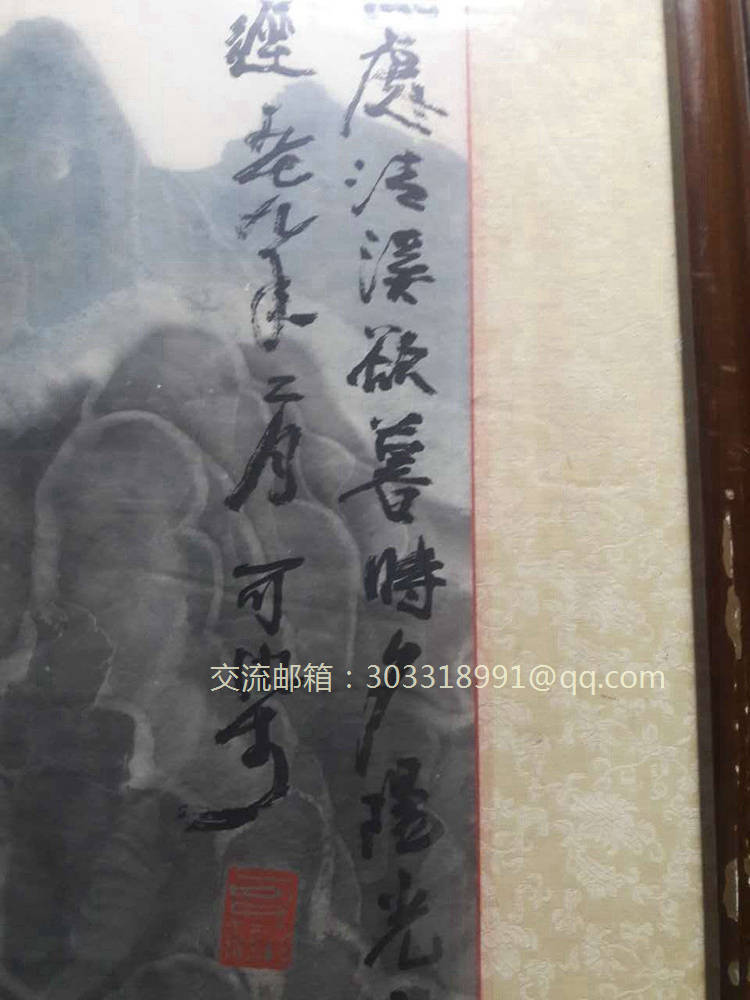 處清溪欲暮時夕陽光
九年二月 可
交流邮箱：303318991@qq.com